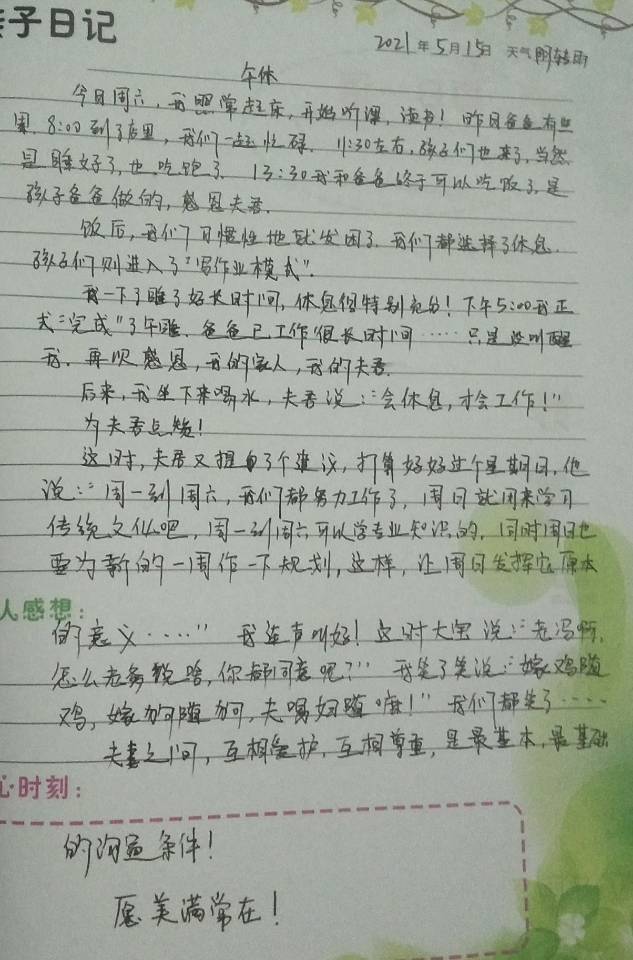 子日记
2021年5月15日 天气阴转雨
午休
今日周六，我照常起床，开始听课，读书！昨日爸爸有些
累，8:00到了店里，我们一起忙碌。11:30左右，孩子们也来了，当然
是睡好了，也吃饱了。13:30我和爸爸终于可以吃饭了，是
孩子爸爸做的，感恩夫君。
饭后，我们习惯性地就发困了，我们都选择了休息，
孩子们则进入了"写作业模式"。
我一下子睡了好长时间，休息得特别充分！下午5:00我正
式"完成"了午睡，爸爸已工作很长时间……只是没叫醒
我，再次感恩，我的家人，我的夫君。
后来，我坐下来喝水，夫君说："会休息，才会工作！"
为夫君点赞！
这时，夫君又提了个建议，打算好好过个星期日，他
说："周一到周六，我们都努力工作了，周日就用来学习
传统文化吧，周一到周六可以学专业知识的，同时周日也
要为新的一周作一下规划，这样，让周日发挥它原本
人感想：
的意义……"我连声叫好！这时大宝说："老冯啊，
怎么老爸说啥，你都同意呢？"我笑了笑说："嫁鸡随
鸡，嫁狗随狗，夫唱妇随嘛！"我们都笑了……
夫妻之间，互相爱护，互相尊重，是最基本，最基础
心时刻：
的沟通条件！
愿美满常在！